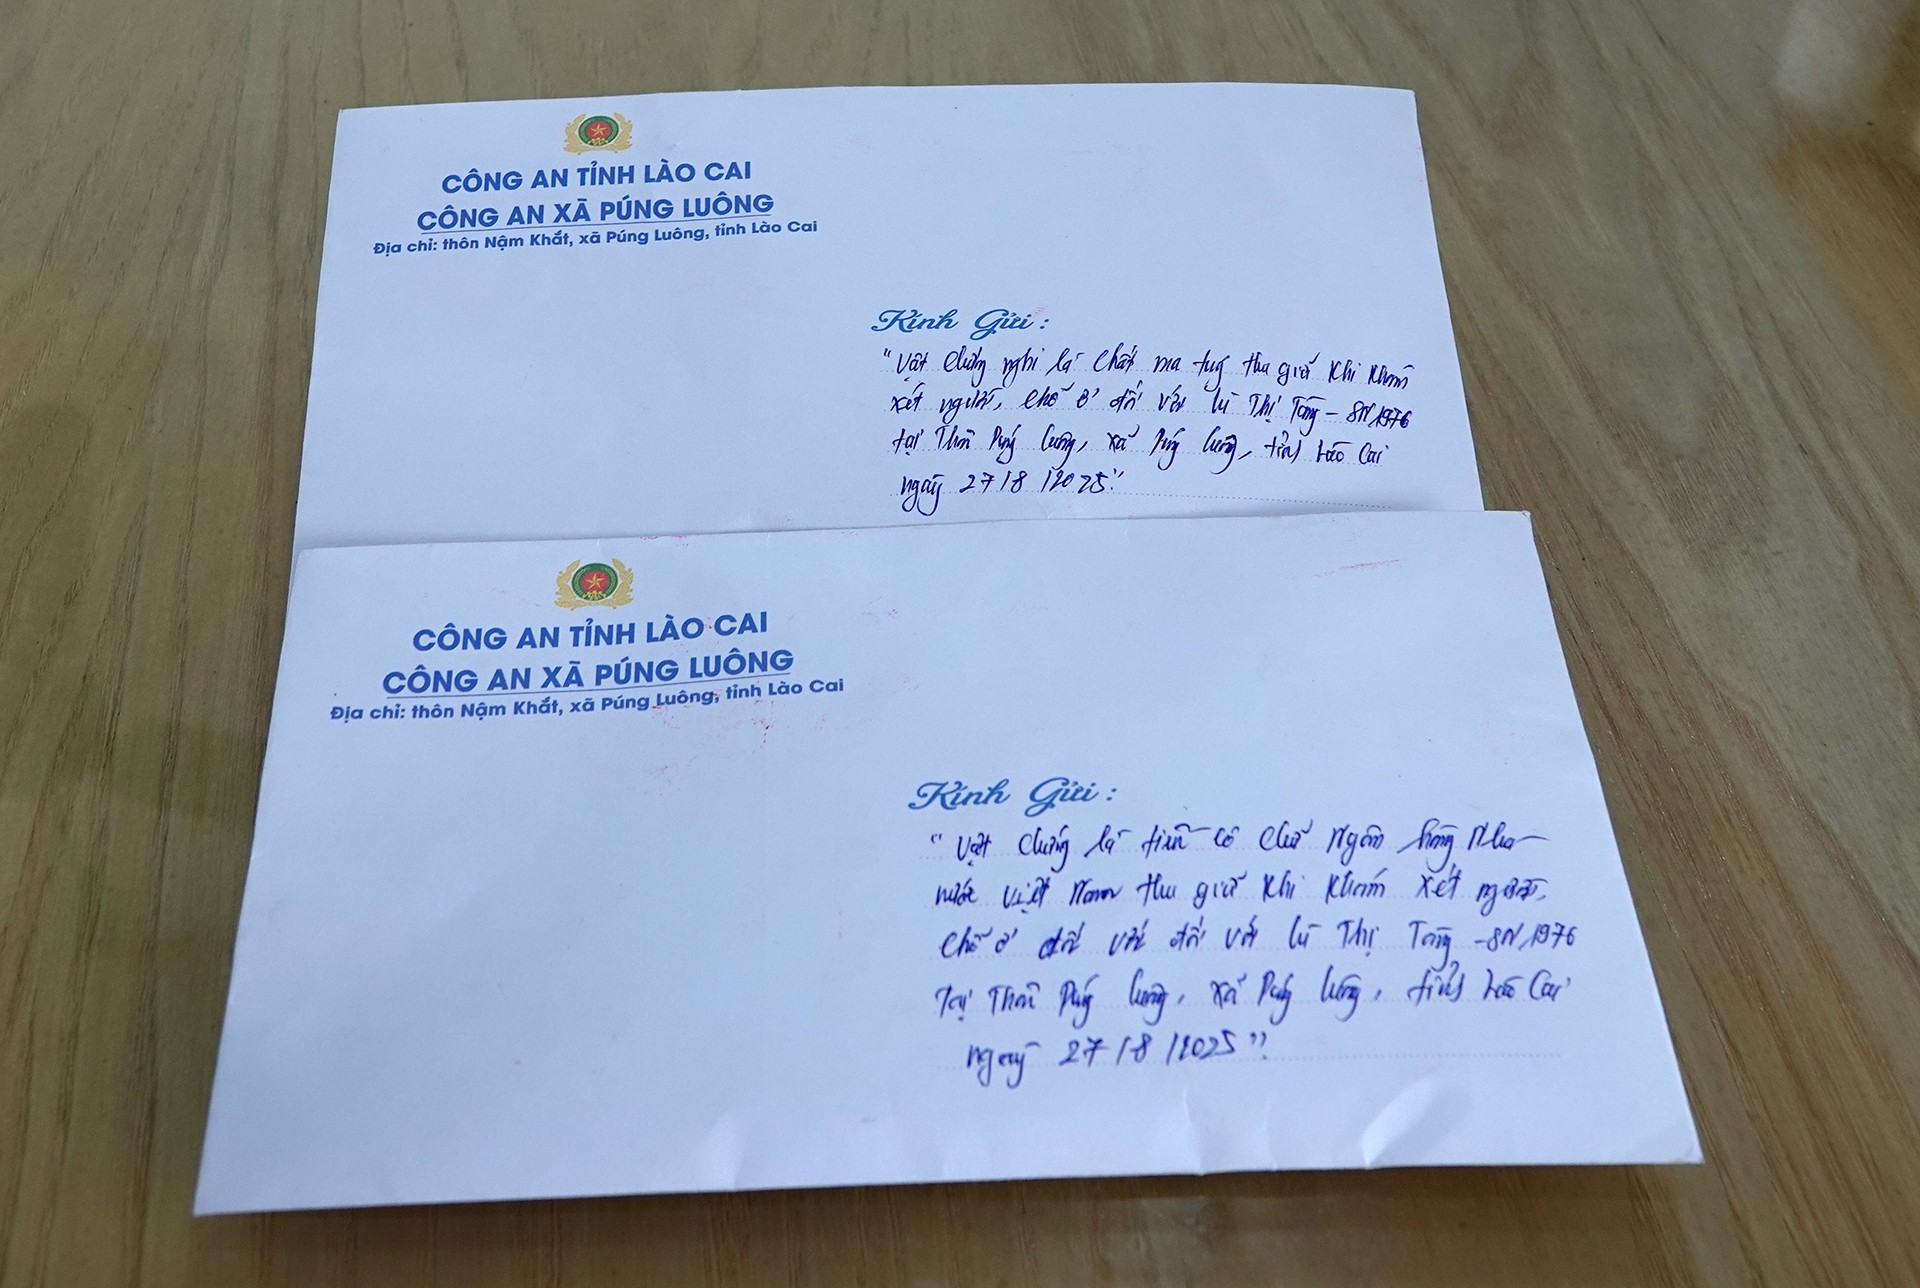 CÔNG AN TỈNH LÀO CAI
CÔNG AN XÃ PÚNG LUÔNG
Địa chỉ: thôn Nậm Khắt, xã Púng Luông, tỉnh Lào Cai
Kính Gửi :
"Vật chứng nghi là chất ma tuý thu giữ khi khám
xét người, chỗ ở đối với Lù Thị Tòng - SN 1976
tại Thôn Púng Luông, xã Púng Luông, tỉnh Lào Cai
ngày 27/8/2025".
CÔNG AN TỈNH LÀO CAI
CÔNG AN XÃ PÚNG LUÔNG
Địa chỉ: thôn Nậm Khắt, xã Púng Luông, tỉnh Lào Cai
Kính Gửi :
"Vật chứng là tiền có chữ Ngân hàng Nhà
nước Việt Nam thu giữ khi khám xét người,
chỗ ở đối với đối với Lù Thị Tòng - SN 1976
Tại Thôn Púng Luông, xã Púng Luông, tỉnh Lào Cai
ngày 27/8/2025".